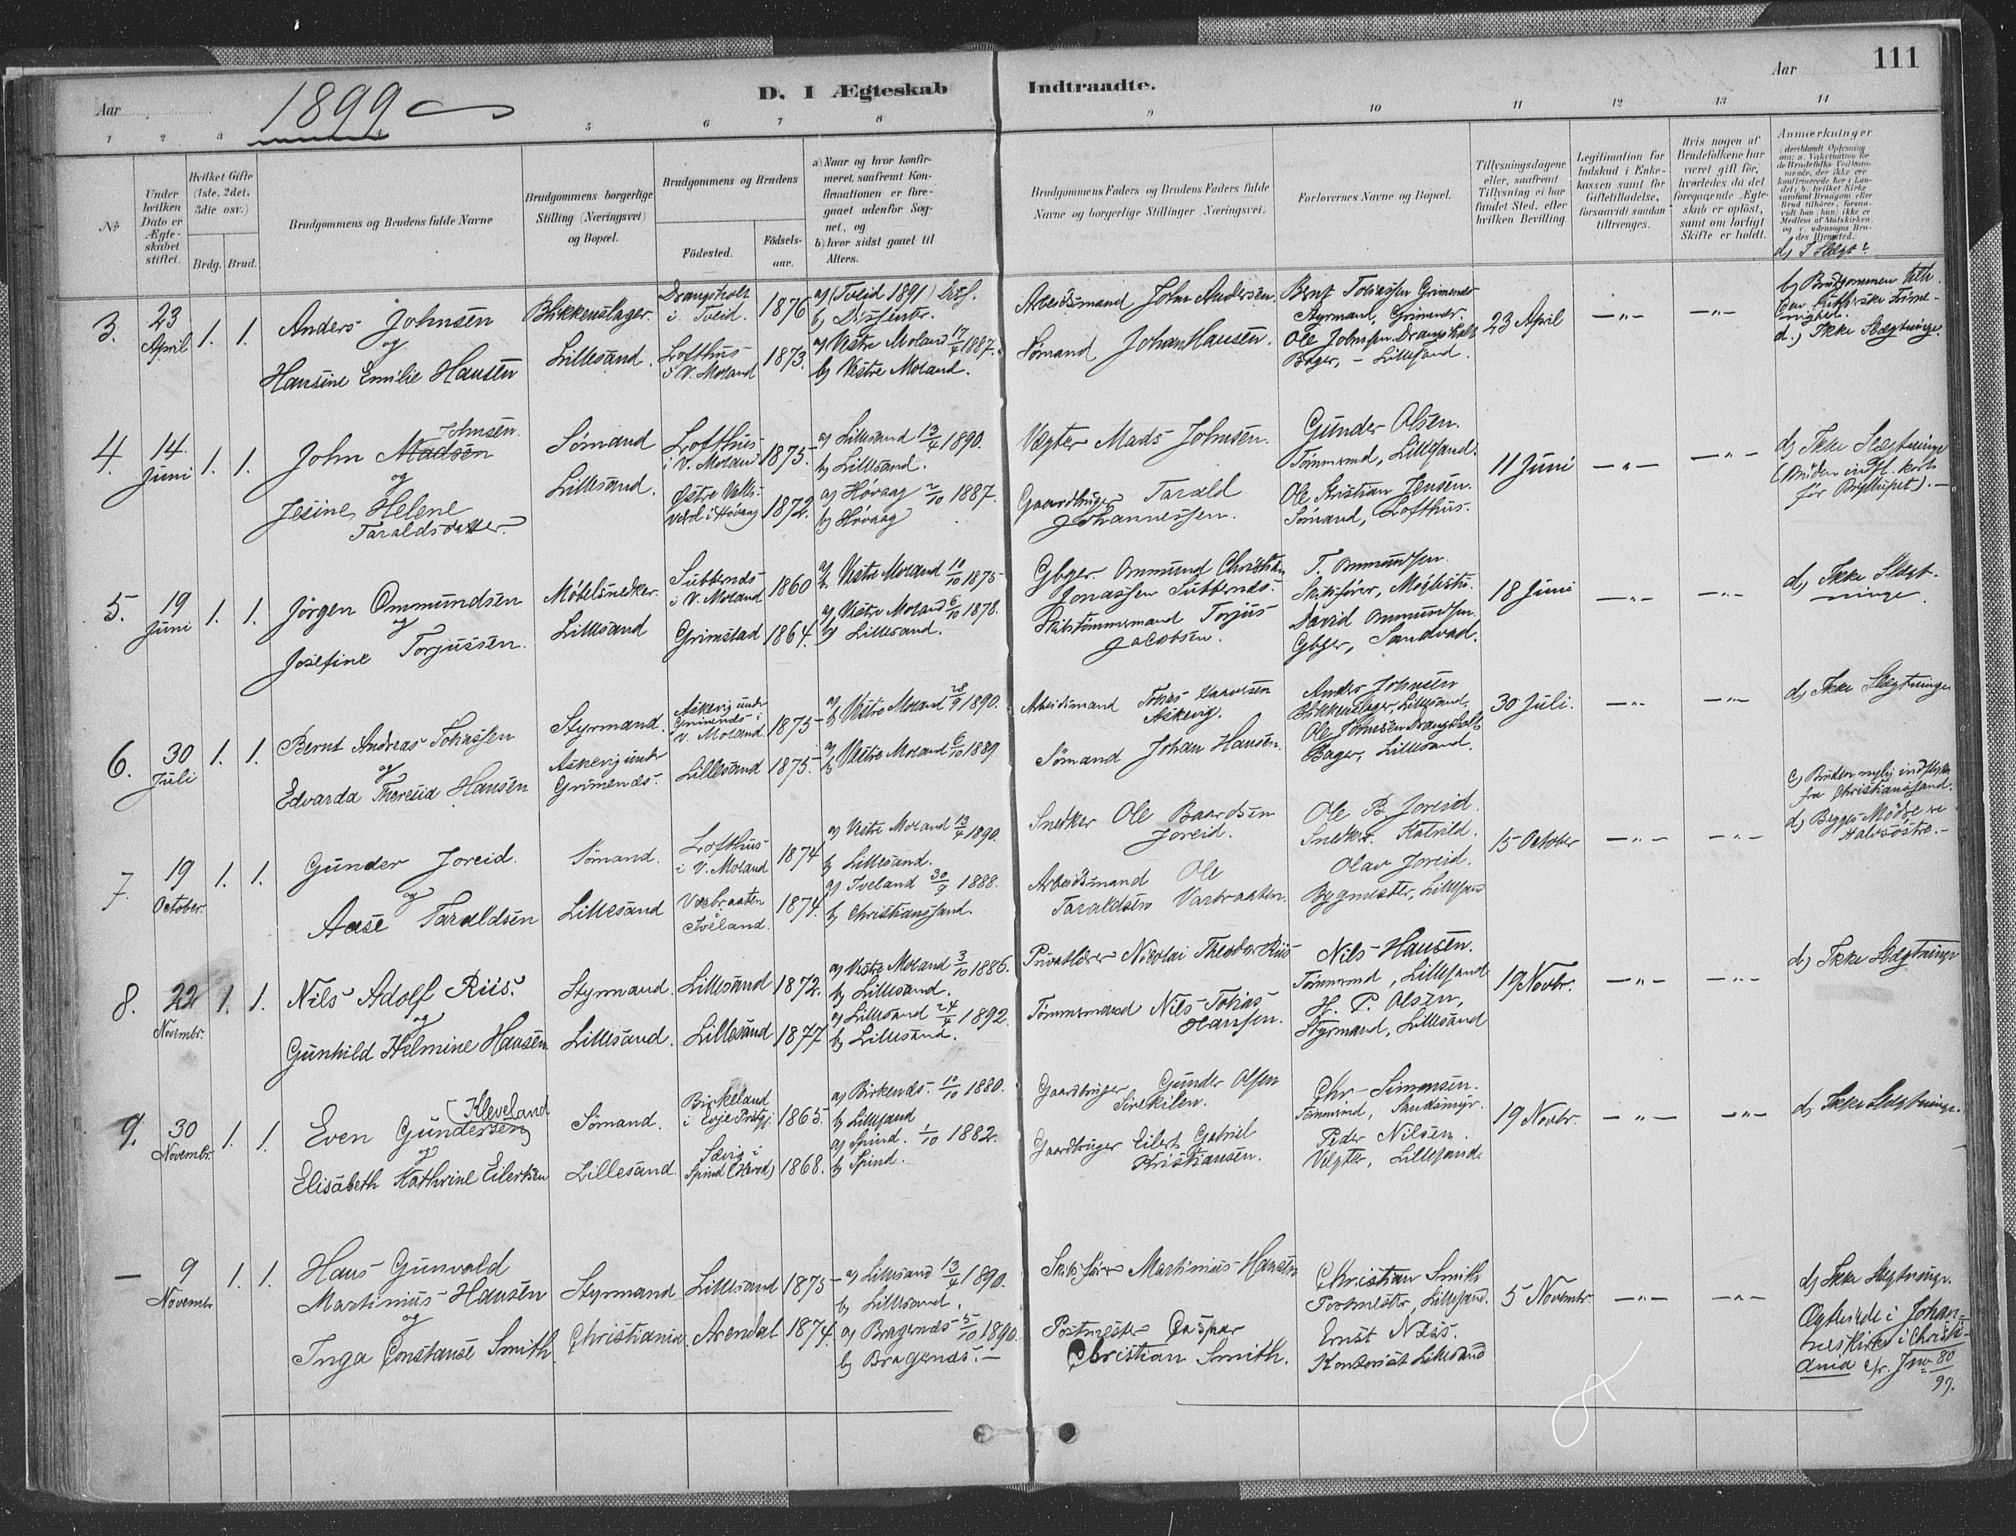 111
Aar 1899 D. I Ægteskab Indtraadte. Aar
1 2 3 5 6 7 8 9 10 11 12 13 14
No
Under hvilken Dato er Ægteskabet stiftet.
Hvilket Gifte (1ste, 2det, 3die osv.)
Brdg. Brud.
Brudgommens og Brudens fulde Navne
Brudgommens borgerlige Stilling (Næringsvei) og Bopæl.
Brudgommens og Brudens
Fødested. Fødselsaar.
a) Naar og hvor konfirmeret, saafremt Konfirmationen er foregaaet udenfor Sognet, og
b) hvor sidst gaaet til Alters.
Brudgommens Faders og Brudens Faders fulde Navne og borgerlige Stillinger (Næringsvei).
Forlovernes Navne og Bopæl.
Tillysningsdagene eller, saafremt Tillysning ei har fundet Sted, efter hvilken Bevilling.
Legitimation for Indskud i Enkekassen samt for Giftetilladelse, forsaavidt saadan tiltrænges.
Hvis nogen af Brudefolkene har været gift før, hvorledes da det foregaaende Ægteskab er opløst, samt om lovligt Skifte er holdt.
Anmærkninger
d) I Slægt?
3. 23 April 1. 1.
Anders Johnsen
og
Hansine Emilie Hansen
Blikkenslager.
Lillesand.
Drangsholt i Tveid. 1876
Lofthus i V. Moland 1873.
a) (Tveid 1891)
b) Dissenter.
a) Vestre Moland 17/4 1887.
b) Vestre Moland.
Arbeidsmand John Andersen.
Sømand Johan Hansen.
Bernt Tobiassen Grimenes
Styrmand, Grimenes.
Ole Johnsen Drangsholt
Bager, - Lillesand.
23 April —„— —„—
b) Brudgommen
d.) Ikke Slægtninge.
4. 14 Juni 1. 1.
Johnsen
John Madsen
og
Jesine Helene
Taraldsdatter.
Sømand
Lillesand.
Lofthus i V. Moland 1875.
Østre Valle i Høvaag 1872.
a) Lillesand 13/4 1890.
b) Lillesand.
a) Høvaag 2/10 1887.
b) Høvaag
Vægter Mads Johnsen.
Gaardbruger Tarald
Johannessen.
Gunder Olsen.
Tømmermd, Lillesand.
Ole Kristian Jensen.
Sømand, Lofthus.
11 Juni —„— —„—
d) Ikke Slægtninge
(Bruden indfl. kort
før Bryllupet). —
5. 19 Juni 1. 1.
Jörgen Ommundsen
og
Josefine Torjussen.
Möbelsnedker.
Lillesand
i V. Moland 1860
Grimstad 1864.
a) b) Vestre Moland 10/10 1875
a) Vestre Moland 6/10 1878.
b) Lillesand.
Gbger. Ommund Christian
Jonassen
Skibstømmermand Torjus
Jacobsen.
T. Ommundsen.
David Ommundsen
Gbger, Sandvad.
18 Juni —„— —„—
d) Ikke Slægtninge.
6. 30 Juli 1. 1.
Bernt Andreas Tobiassen
og
Edvarda Theresia Hansen
Styrmand.
Askevig under
Grimenes.
Askevig under Grimenes i V. Moland 1875
Lillesand 1875.
a) b) Vestre Moland 28/9 1890.
a) b) Vestre Moland 6/10 1889
Arbeidsmand Tobias
Askevig.
Sømand Johan Hansen.
Anders Johnsen
Blikkenslager, Lillesand,
Ole Johnsen Drangsholt
Bager, Lillesand.
30 Juli. —„— —„—
d) Ikke Slægtninge
7. 19 October. 1. 1.
Gunder Joreid.
og
Aase Taraldsen
Sømand.
Lillesand
Lofthus i V. Moland 1874
Varbraaten Iveland. 1874.
a) Vestre Moland 13/4 1890.
b) Lillesand.
a) Iveland 30/9 1888.
b) Christianssand.
Snedker Ole Baardsen
Joreid.
Arbeidsmand Ole
Taraldsen Varbraaten.
Ole B. Joreid.
Snedker.
Olav Joreid.
Bygmester, Lillesand
15 October —„— —„—
c) Bruden nylig indflyttet
fra Christianssand.
d) Begges Mødre er
Halvsøstre. —
8. 22 Novembr. 1. 1.
Nils Adolf Riis.
og
Gunhild Helmine Hansen
Styrmand.
Lillesand.
Lillesand 1872.
Lillesand 1877
a) Vestre Moland 3/10 1886.
b) Lillesand.
a) Lillesand 24/4 1892.
b) Lillesand.
Privatlærer Nicolai Theodor Riis
Tömmermand Nils Tobias
Hansen.
Nils Hansen.
Tømmermd, Lillesand
H. P. Olsen,
Styrmand, Lillesand
19 Novbr. —„— —„—
d) Ikke Slægtninge
9. 30 Novembr. 1. 1.
Kleveland
Even Gundersen
og
Elisabeth Kathrine Eilertsen
Sømand.
Lillesand.
Birkeland i Evje Prstgj. 1865
Sævig i Spind (Herred) 1868.
a) Birkenes 10/10 1880.
b) Lillesand
a) Spind. 1/10 1882.
b) Spind.
Gaardbruger Gunder Olsen
Gaardbruger Eilert Gabriel
Kristiansen.
Chr. Simonsen.
Tømmermd, Sandsmyr.
Peder Nilsen.
Vægter, Lillesand.
19 Novbr. —„— —„—
d) Ikke Slægtninge.
— 9 Novembr 1. 1.
Hans Gunvald
Martinius Hansen
og
Inga Constanse Smith
Styrmand
Christiania
Lillesand 1875
Arendal 1874.
a) Lillesand 13/4 1890.
b) Lillesand.
a) Bragernes 5/10 1890.
b) Bragernes. —
Skibsfører Martinius Hansen
Postmester Caspar
Christian Smith.
Christian Smith
Postmester, Lillesand.
Ernst Niis.
Kontorist Lillesand
5 Novembr. —„— —„—
d) Ikke Slægtninge.
Ægteviede i Johanneskirken i Christiania cfr. Jno 80/99.